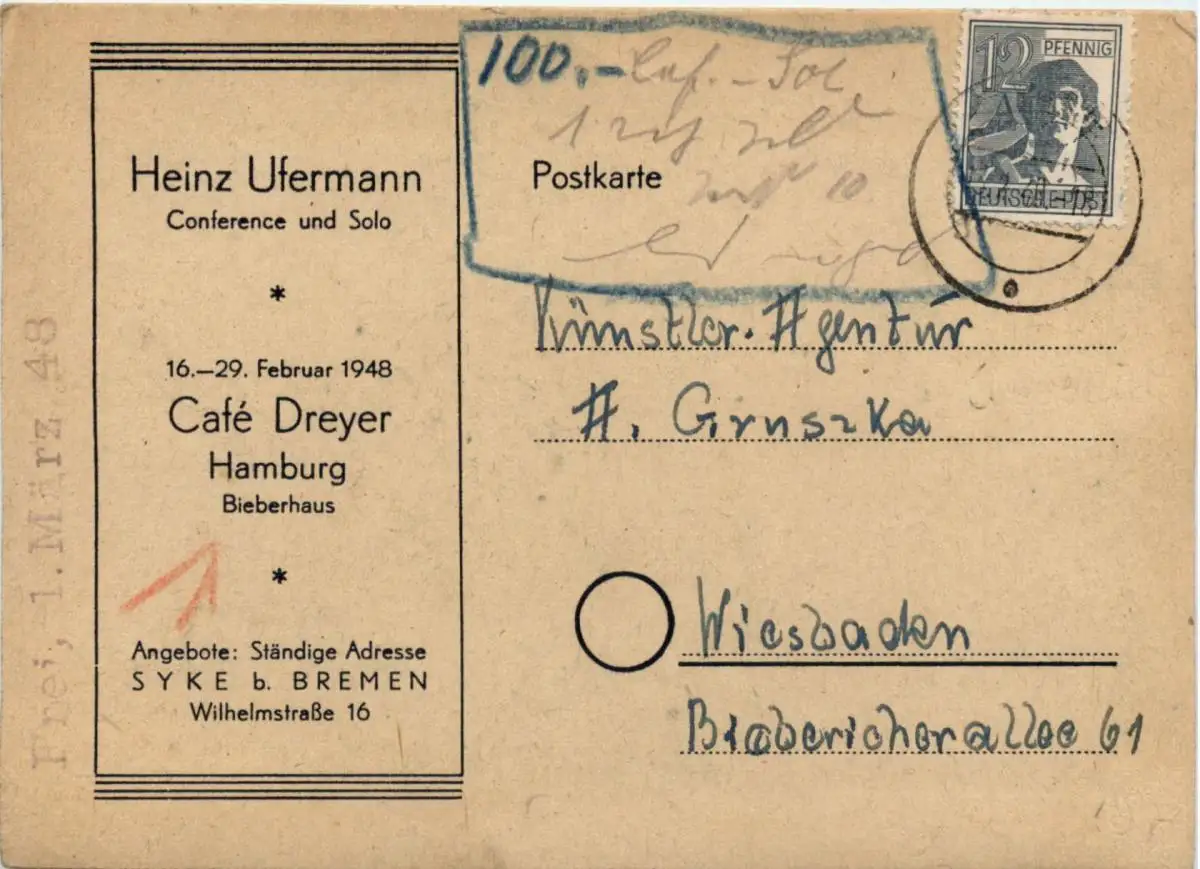 Heinz Ufermann
Conference und Solo
*
16.—29. Februar 1948
Café Dreyer
Hamburg
Bieberhaus
*
Angebote: Ständige Adresse
SYKE b. BREMEN
Wilhelmstraße 16
Frei, 1. März 48
100.-
Postkarte
12 PFENNIG
DEUTSCHE POST
Künstler. Agentur
A. Gruszka
Wiesbaden
Biebericherallee 61